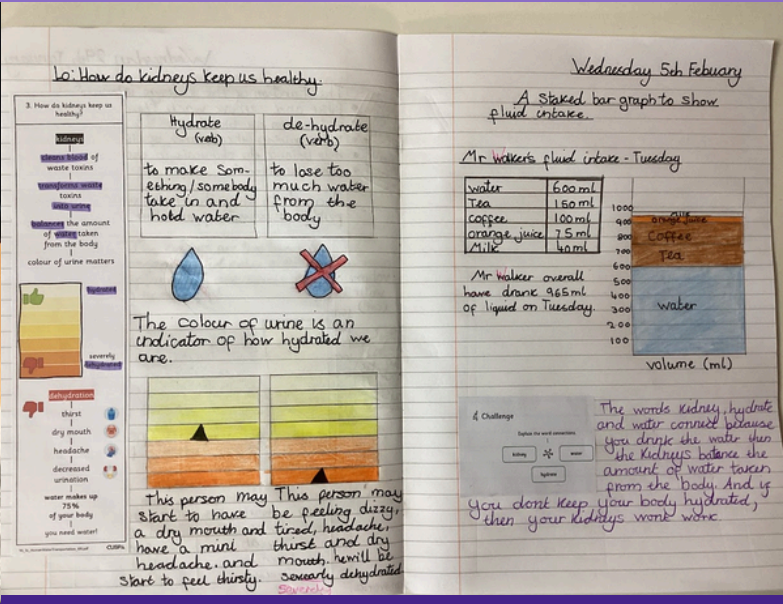 Lo: How do kidneys keep us healthy.
3. How do kidneys keep us
healthy?
kidneys
cleans blood of
waste toxins
transforms waste
toxins
into urine
balances the amount
of water taken
from the body
colour of urine matters
hydrated
severely
dehydrated
dehydration
thirst
dry mouth
headache
decreased
urination
water makes up
75%
of your body
you need water!
Hydrate
(verb)
to make som-
ething/somebody
take in and
hold water
de-hydrate
(verb)
to lose too
much water
from the
body
The colour of urine is an
indicator of how hydrated we
are.
This person may
start to have
a dry mouth and
have a mint
headache. and
start to feel thirsty.
This person may
be feeling dizzy,
tired, headache,
thirst and dry
mouth. he will be
severarly dehydrated
severely
Wednesday 5th Febuary
A staked bar graph to show
fluid intake.
Mr Walker's fluid intake - Tuesday
water 600ml
Tea 150ml
coffee 100ml
orange juice 75ml
Milk 40ml
Mr Walker overall
have drank 965ml
of liquid on Tuesday.
1000
900
800
700
600
500
400
300
200
100
Milk
orange juice
Coffee
Tea
water
volume (ml)
4 Challenge
Explain the word connections.
kidney
water
hydrate
The words kidney, hydrate
and water connect because
you drink the water then
the kidneys balance the
amount of water taken
from the body. And if
you dont keep your body hydrated,
then your kidneys wont work.